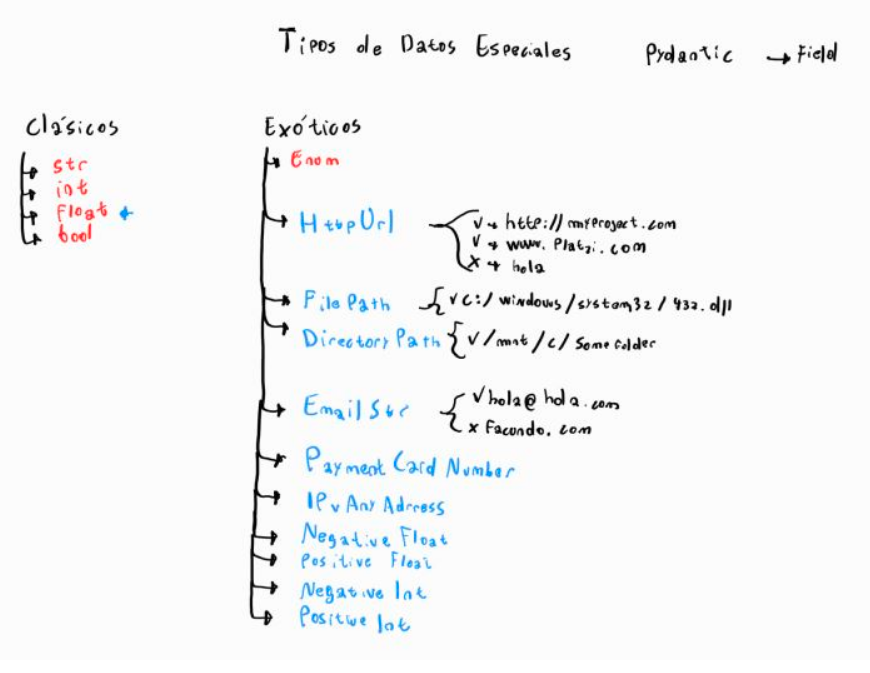 Tipos de Datos Especiales Pydantic → Field
Clásicos
str
int
Float
bool
Exóticos
Enom
HttpUrl
✓ → http://myproyect.com
✓ → www.Platzi.com
X → hola
File Path { ✓ c:/windows/system32/432.dll
Directory Path { ✓ /mnt/c/some folder
Email Str
✓ hola@hola.com
x Facundo.com
Payment Card Number
IPv Any Adrress
Negative Float
Positive Float
Negative Int
Positive Int